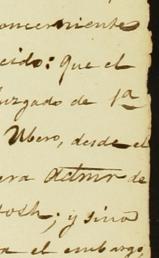 concerniente
cido: que el
uzgado de 1a
Ubero, desde el
era admor de
tosh; y sino
a el embargo,